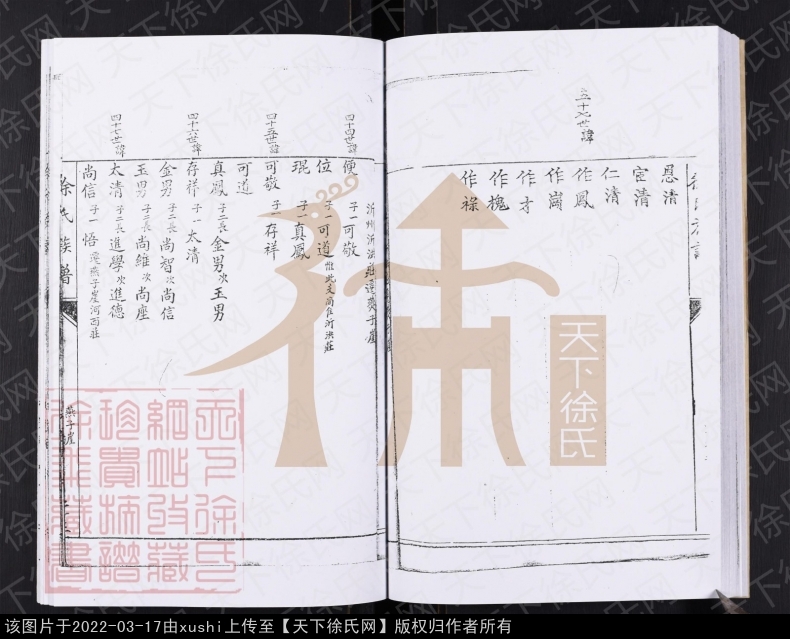 徐氏族譜
五十七世諱
恩清
宦清
仁清
作鳳
作崗
作才
作槐
作祿
沂州沂洪莊遷燕子崖
四十四世諱
便 子一可敬
位 子一可道 惟此支尚在沂洪莊
琨 子一真鳳
四十五世諱
可敬 子一存祥
可道
真鳳 子二長金男次玉男
四十六世諱
存祥 子一太清
金男 子二長尚智次尚信
玉男 子二長尚維次尚座
四十七世諱
太清 子二長進學次進德
尚信 子一悟 遷燕子崖河西莊
徐氏族譜
燕子崖
天下徐氏
天下徐氏網站收藏珍貴摘譜徐華藏書
天下徐氏网
该图片于2022-03-17由xushi上传至【天下徐氏网】版权归作者所有